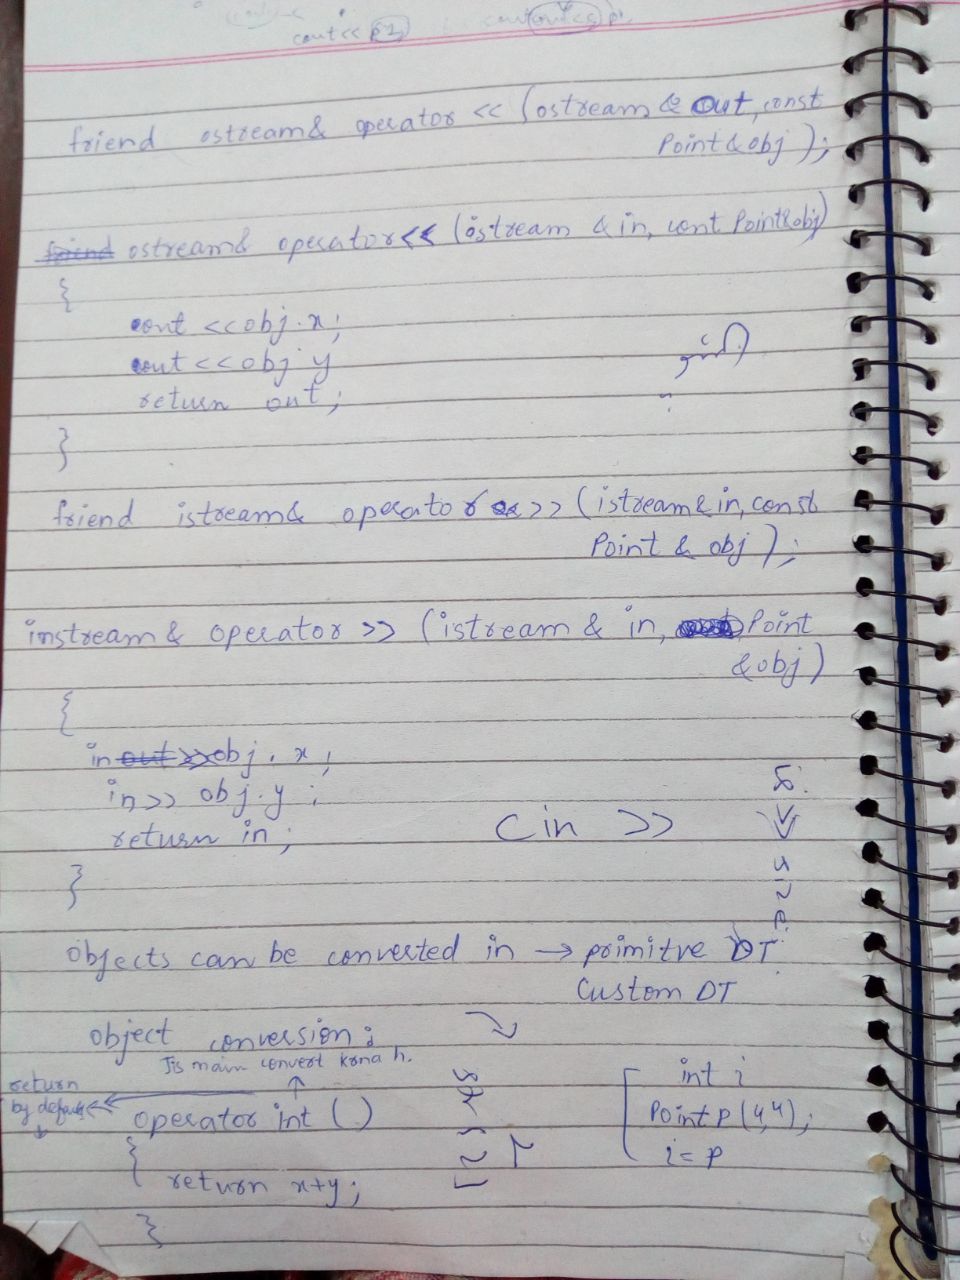 cout<< p1
friend ostream& operator << (ostream & out, const
Point & obj );
friend ostream& operator<< (istream & in, cont Point&obj)
{
cout <<obj.x;
cout <<obj y
return out;
}
friend istream& operator >> (istream & in, const
Point & obj );
instream & operator >> (istream & in, Point
& obj )
{
in out >>obj . x ;
in>> obj.y ;
return in;
Cin >>
}
objects can be converted in → primitve DT
Custom DT
object conversion:
Jis main convert krna h.
return
by default
operator int ()
{
return x+y;
}
int i
Point p (4,4);
i= p